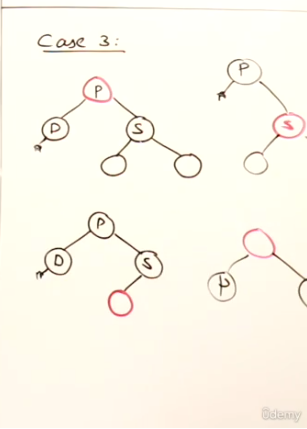 Case 3:
P
P
D
S
S
P
D
S
P
ûdemy